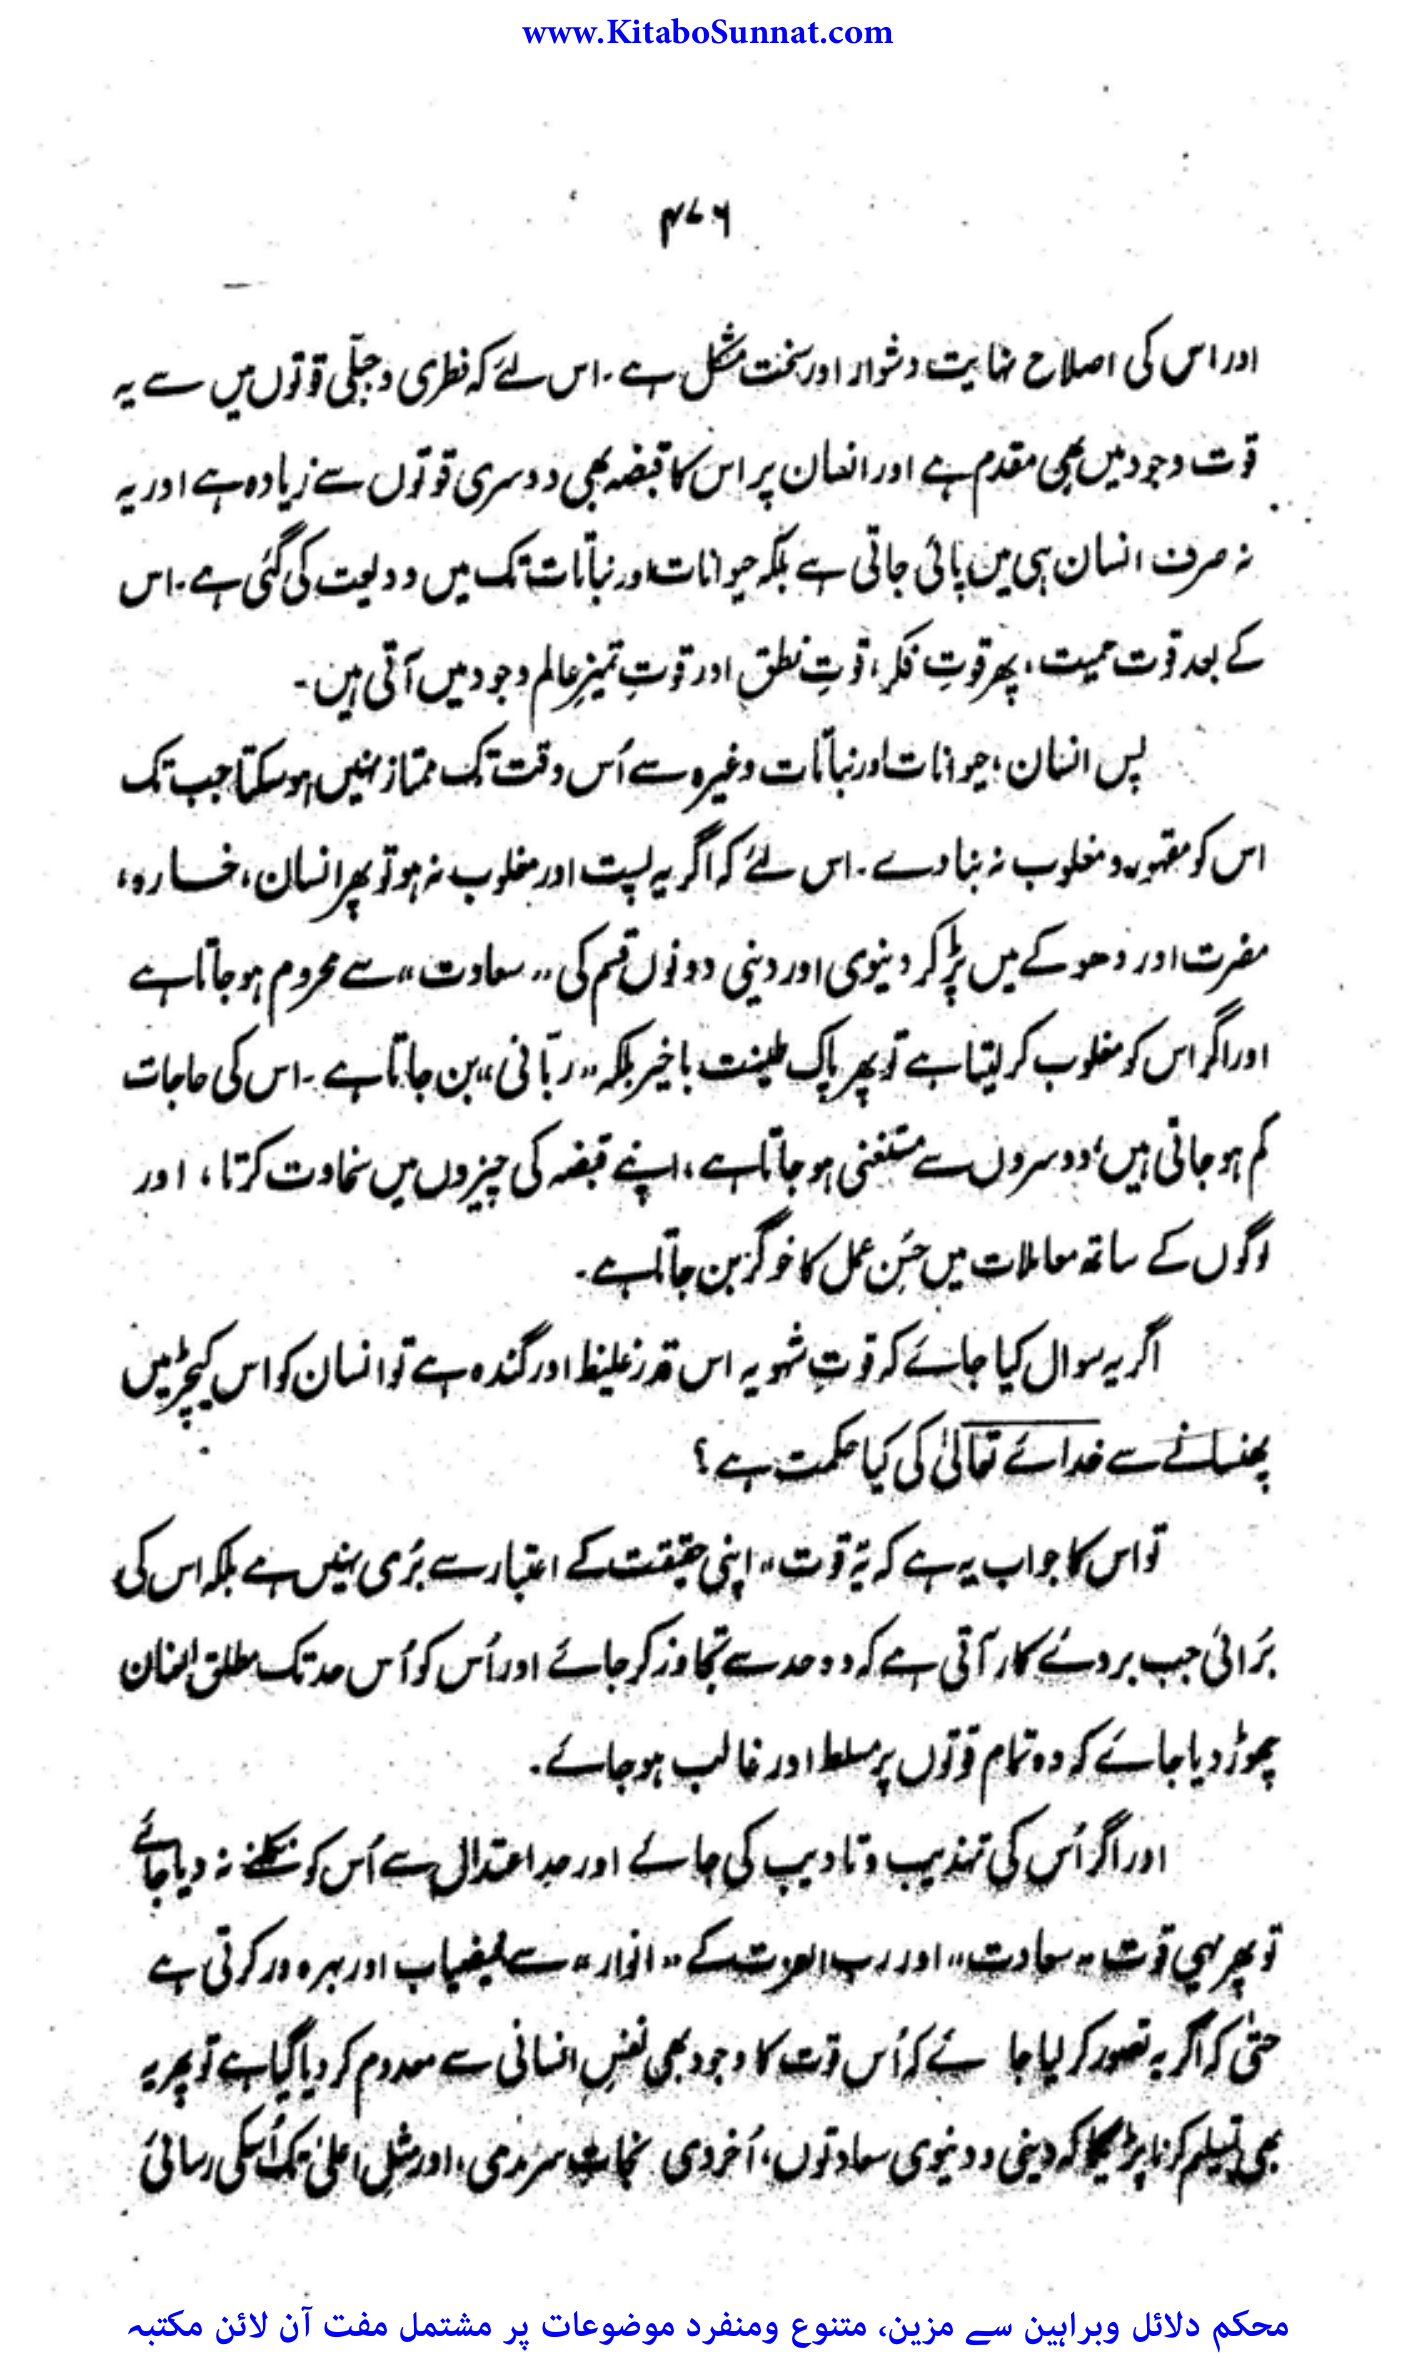 www.KitaboSunnat.com
۴۷۶
اور اس کی اصلاح نہایت دشوار اور سخت مشکل ہے۔ اس لئے کہ فطری و جبلّی قوتوں میں سے یہ
قوت وجود میں بھی مقدم ہے اور انسان پر اس کا قبضہ بھی دوسری قوتوں سے زیادہ ہے اور یہ
نہ صرف انسان ہی میں پائی جاتی ہے بلکہ حیوانات اور نباتات تک میں ودیعت کی گئی ہے۔ اس
کے بعد قوت حمیت، پھر قوتِ فکر، قوتِ نطق اور قوتِ تمیز عالم وجود میں آتی ہیں۔
پس انسان، حیوانات اور نباتات وغیرہ سے اُس وقت تک ممتاز نہیں ہو سکتا جب تک
اس کو مقہور و مغلوب نہ بنا دے۔ اس لئے کہ اگر یہ پست اور مغلوب نہ ہو تو پھر انسان، خسارہ،
مضرت اور دھوکے میں پڑ کر دنیوی اور دینی دونوں قسم کی "سعادت" سے محروم ہو جاتا ہے
اور اگر اس کو مغلوب کر لیتا ہے تو پھر پاک طینت باخیر بلکہ "ربّانی" بن جاتا ہے۔ اس کی حاجات
کم ہو جاتی ہیں، دوسروں سے مستغنی ہو جاتا ہے، اپنے قبضہ کی چیزوں میں سخاوت کرتا، اور
لوگوں کے ساتھ معاملات میں حُسنِ عمل کا خوگر بن جاتا ہے۔
اگر یہ سوال کیا جائے کہ قوتِ شہویہ اس قدر غلیظ اور گندہ ہے تو انسان کو اس کیچڑ میں
پھنسانے سے خدائے تعالیٰ کی کیا حکمت ہے؟
تو اس کا جواب یہ ہے کہ یہ قوت " اپنی حقیقت کے اعتبار سے بُری نہیں ہے بلکہ اس کی
بُرائی جب بروئے کار آتی ہے کہ وہ حد سے تجاوز کر جائے اور اُس کو اُس حد تک مطلق العنان
چھوڑ دیا جائے کہ وہ تمام قوتوں پر مسلط اور غالب ہو جائے۔
اور اگر اُس کی تہذیب و تادیب کی جائے اور حد اعتدال سے اُس کو نکلنے نہ دیا جائے
تو پھر یہی قوت "سعادت" اور رب العزت کے "انوار" سے فیضیاب اور بہرہ ور کرتی ہے
حتیٰ کہ اگر یہ تصور کر لیا جا ئے کہ اُس قوت کا وجود بھی نفسِ انسانی سے معدوم کر دیا گیا ہے تو پھر یہ
بھی تسلیم کرنا پڑیگا کہ دینی و دنیوی سعادتوں، اُخروی نجاتِ سرمدی، اور مثلِ اعلیٰ تک اُسکی رسائی
محکم دلائل وبراہین سے مزین، متنوع ومنفرد موضوعات پر مشتمل مفت آن لائن مکتبہ